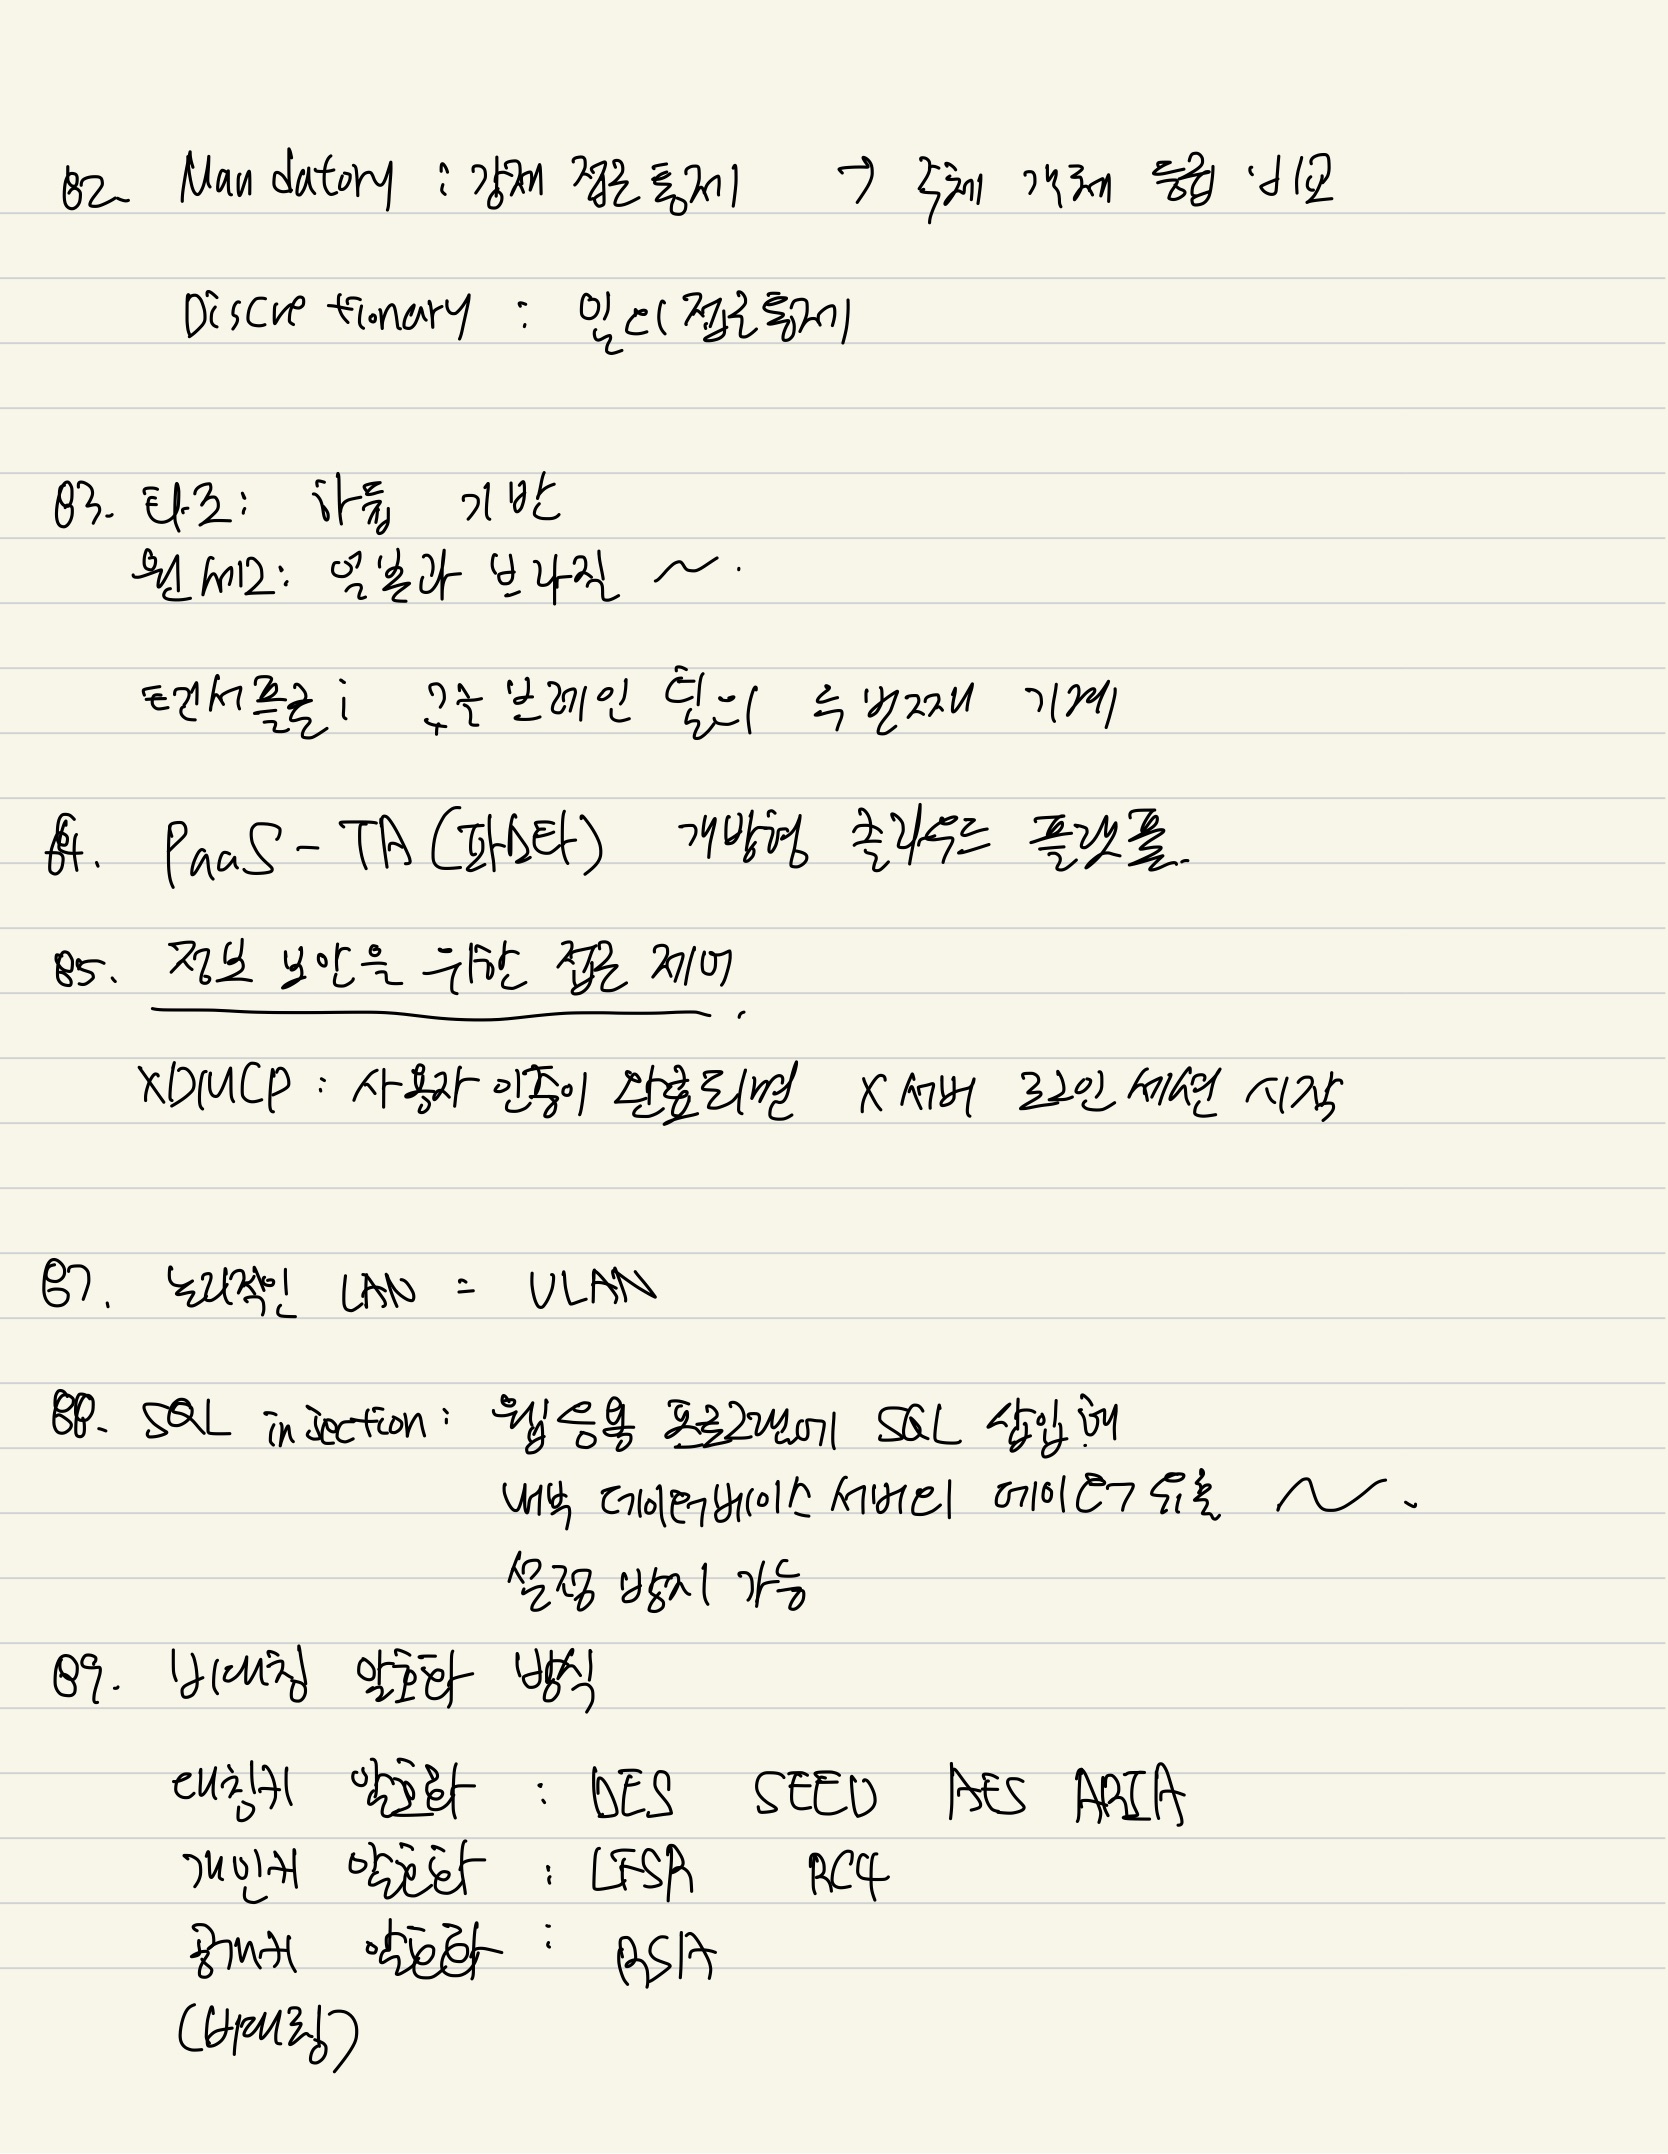 82. Mandatory : 강제 접근통제 → 주체 객체 등급 비교
Discretionary : 임의 접근통제
83. 타조: 하둡 기반
원세그: 일본과 브라질 ~.
텐서플로: 구글 브레인 팀의 두번째 기계
84. PaaS-TA(파스타) 개방형 클라우드 플랫폼.
85. 정보 보안을 위한 접근 제어.
XDMCP : 사용자 인증이 완료되면 X서버 로그인 세션 시작
87. 논리적인 LAN = VLAN
88. SQL injection: 웹 응용 프로그램에 SQL 삽입해
내부 데이터베이스 서버의 데이터 유출 ~.
설정 방지 가능
89. 비대칭 암호화 방식
대칭키 암호화 : DES SEED AES ARIA
개인키 암호화 : LFSR RC4
공개키 암호화 : RSA
(비대칭)